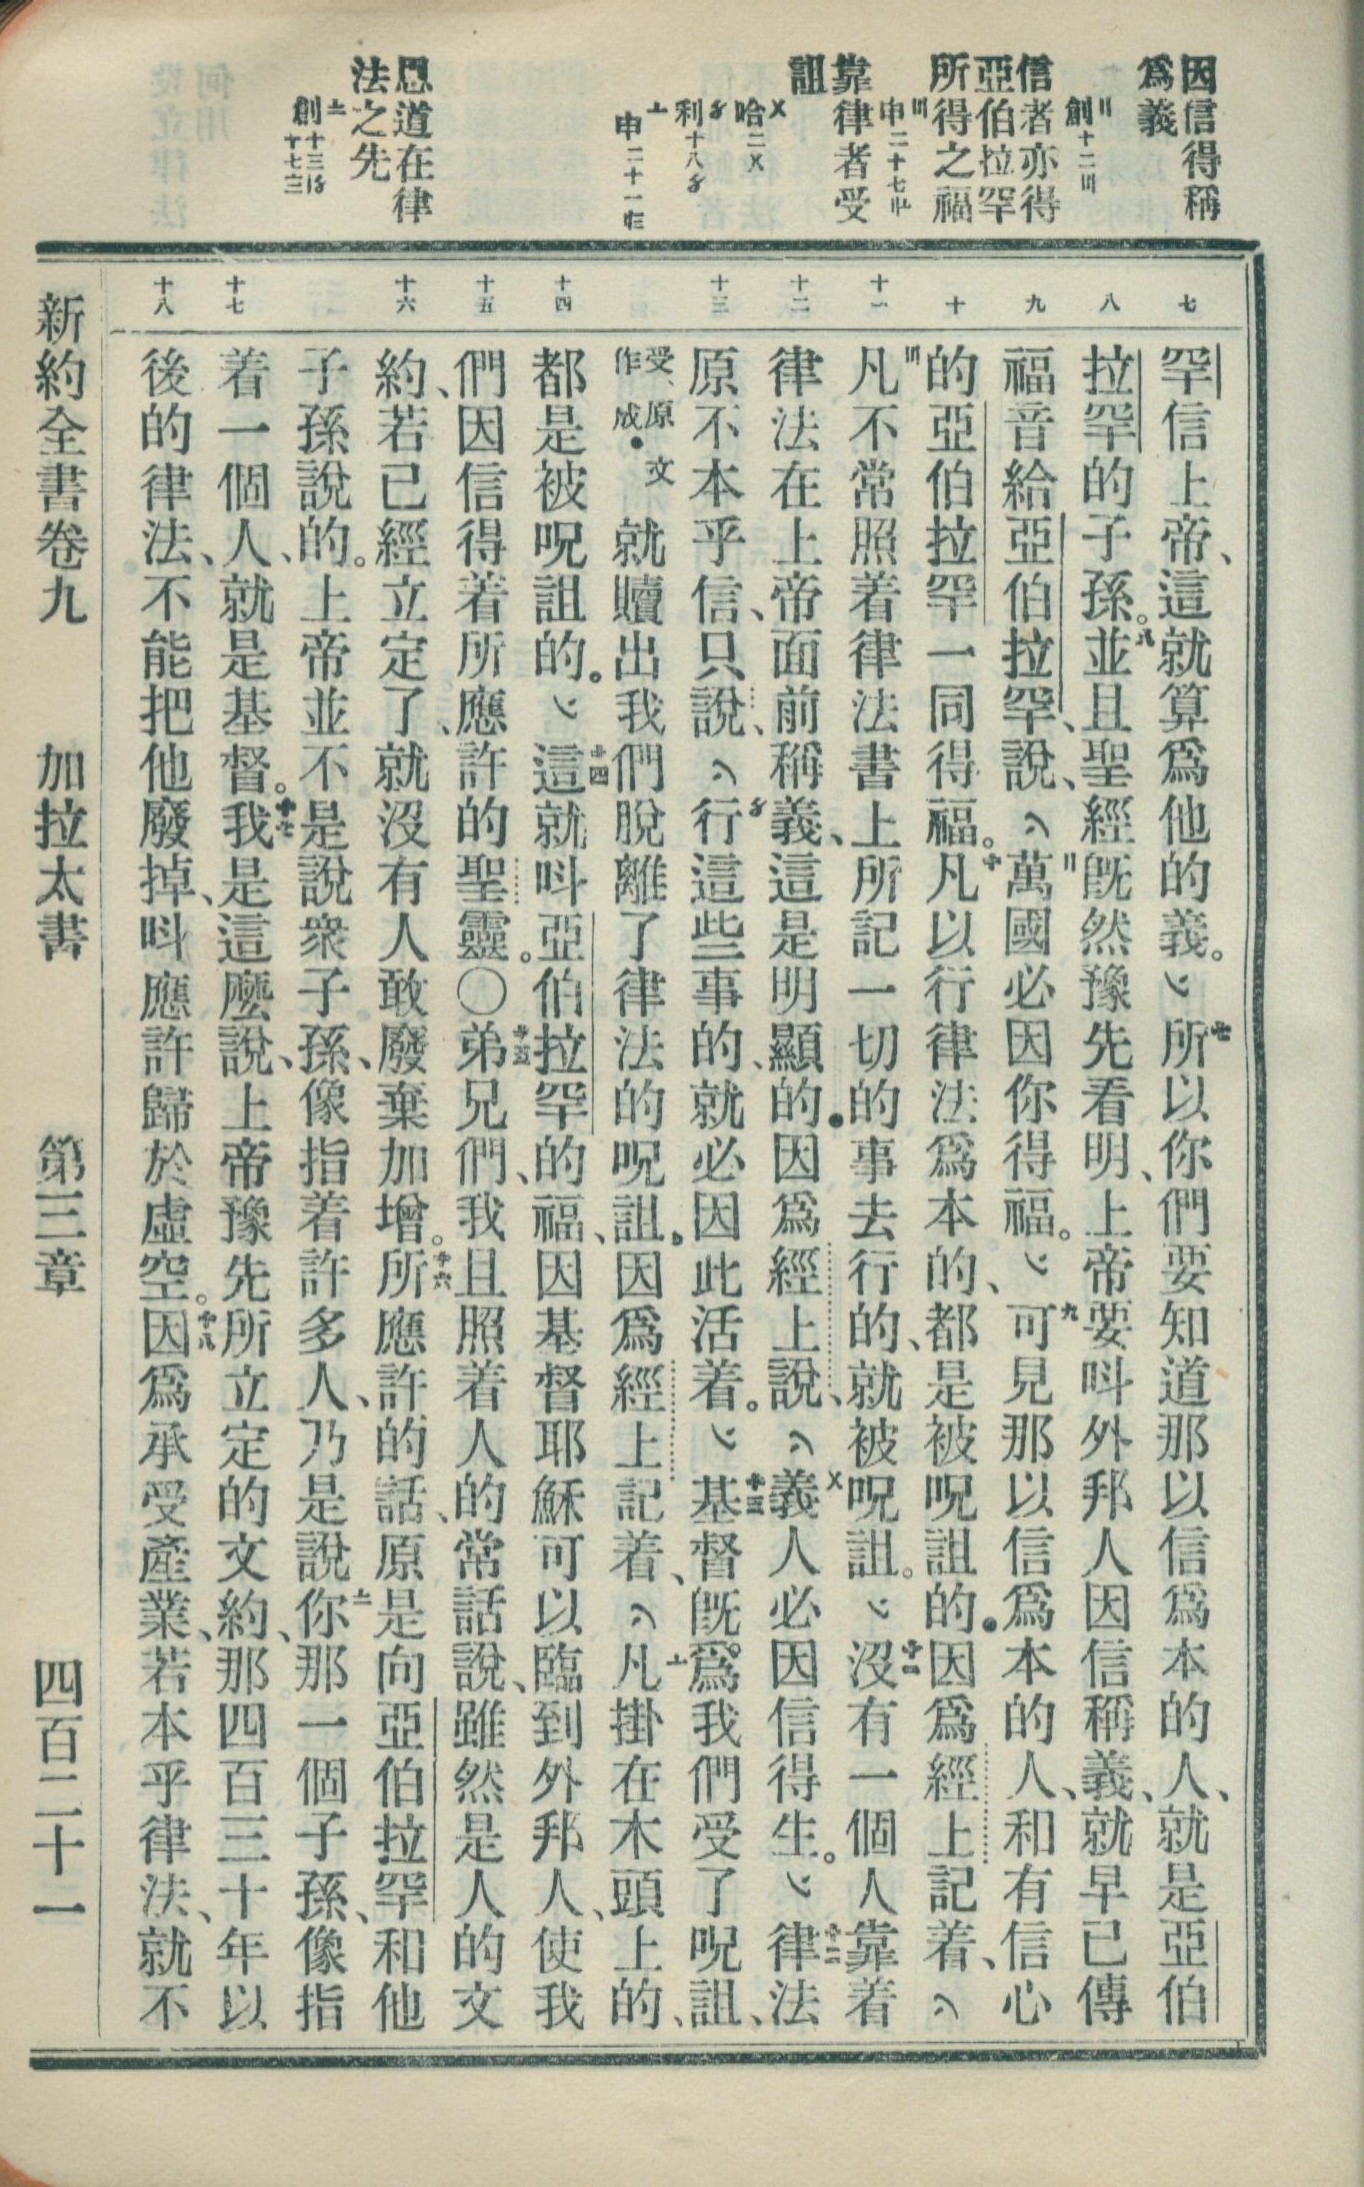 因信得稱
爲義
創十二〣
信者亦得
亞伯拉罕
所得之福
申二十七
靠律者受
詛
哈二〤
利十八〥
申二十一
恩道在律
法之先
創十三〥
十七
七
八
九
十
十一
十二
十三
十四
十五
十六
十七
十八
罕信上帝、這就算爲他的義。﹀七所以你們要知道那以信爲本的人、就是亞伯
拉罕的子孫。八並且聖經旣然豫先看明、上帝要呌外邦人因信稱義、就早已傳
福音給亞伯拉罕、說、︿〢萬國必因你得福。﹀九可見那以信爲本的人、和有信心
的亞伯拉罕一同得福。十凡以行律法爲本的、都是被呪詛的．因爲經上記着、︿
〣凡不常照着律法書上所記一切的事去行的、就被呪詛。﹀十一沒有一個人靠着
律法在上帝面前稱義、這是明顯的．因爲經上說、︿〤義人必因信得生。﹀十二律法
原不本乎信、只說、︿〥行這些事的、就必因此活着。﹀十三基督旣爲我們受了呪詛、
受、原文作成．就贖出我們脫離了律法的呪詛。因爲經上記着、︿〦凡掛在木頭上的、
都是被呪詛的。﹀十四這就呌亞伯拉罕的福、因基督耶穌可以臨到外邦人、使我
們因信得着所應許的聖靈。〇十五弟兄們、我且照着人的常話說、雖然是人的文
約、若已經立定了、就沒有人敢廢棄加增。十六所應許的話、原是向亞伯拉罕和他
子孫說的。上帝並不是說衆子孫、像指着許多人、乃是說〧你那一個子孫、像指
着一個人、就是基督。十七我是這麽說、上帝豫先所立定的文約、那四百三十年以
後的律法、不能把他廢掉、呌應許歸於虛空。十八因爲承受產業、若本乎律法、就不
新約全書卷九　加拉太書　第三章　四百二十一